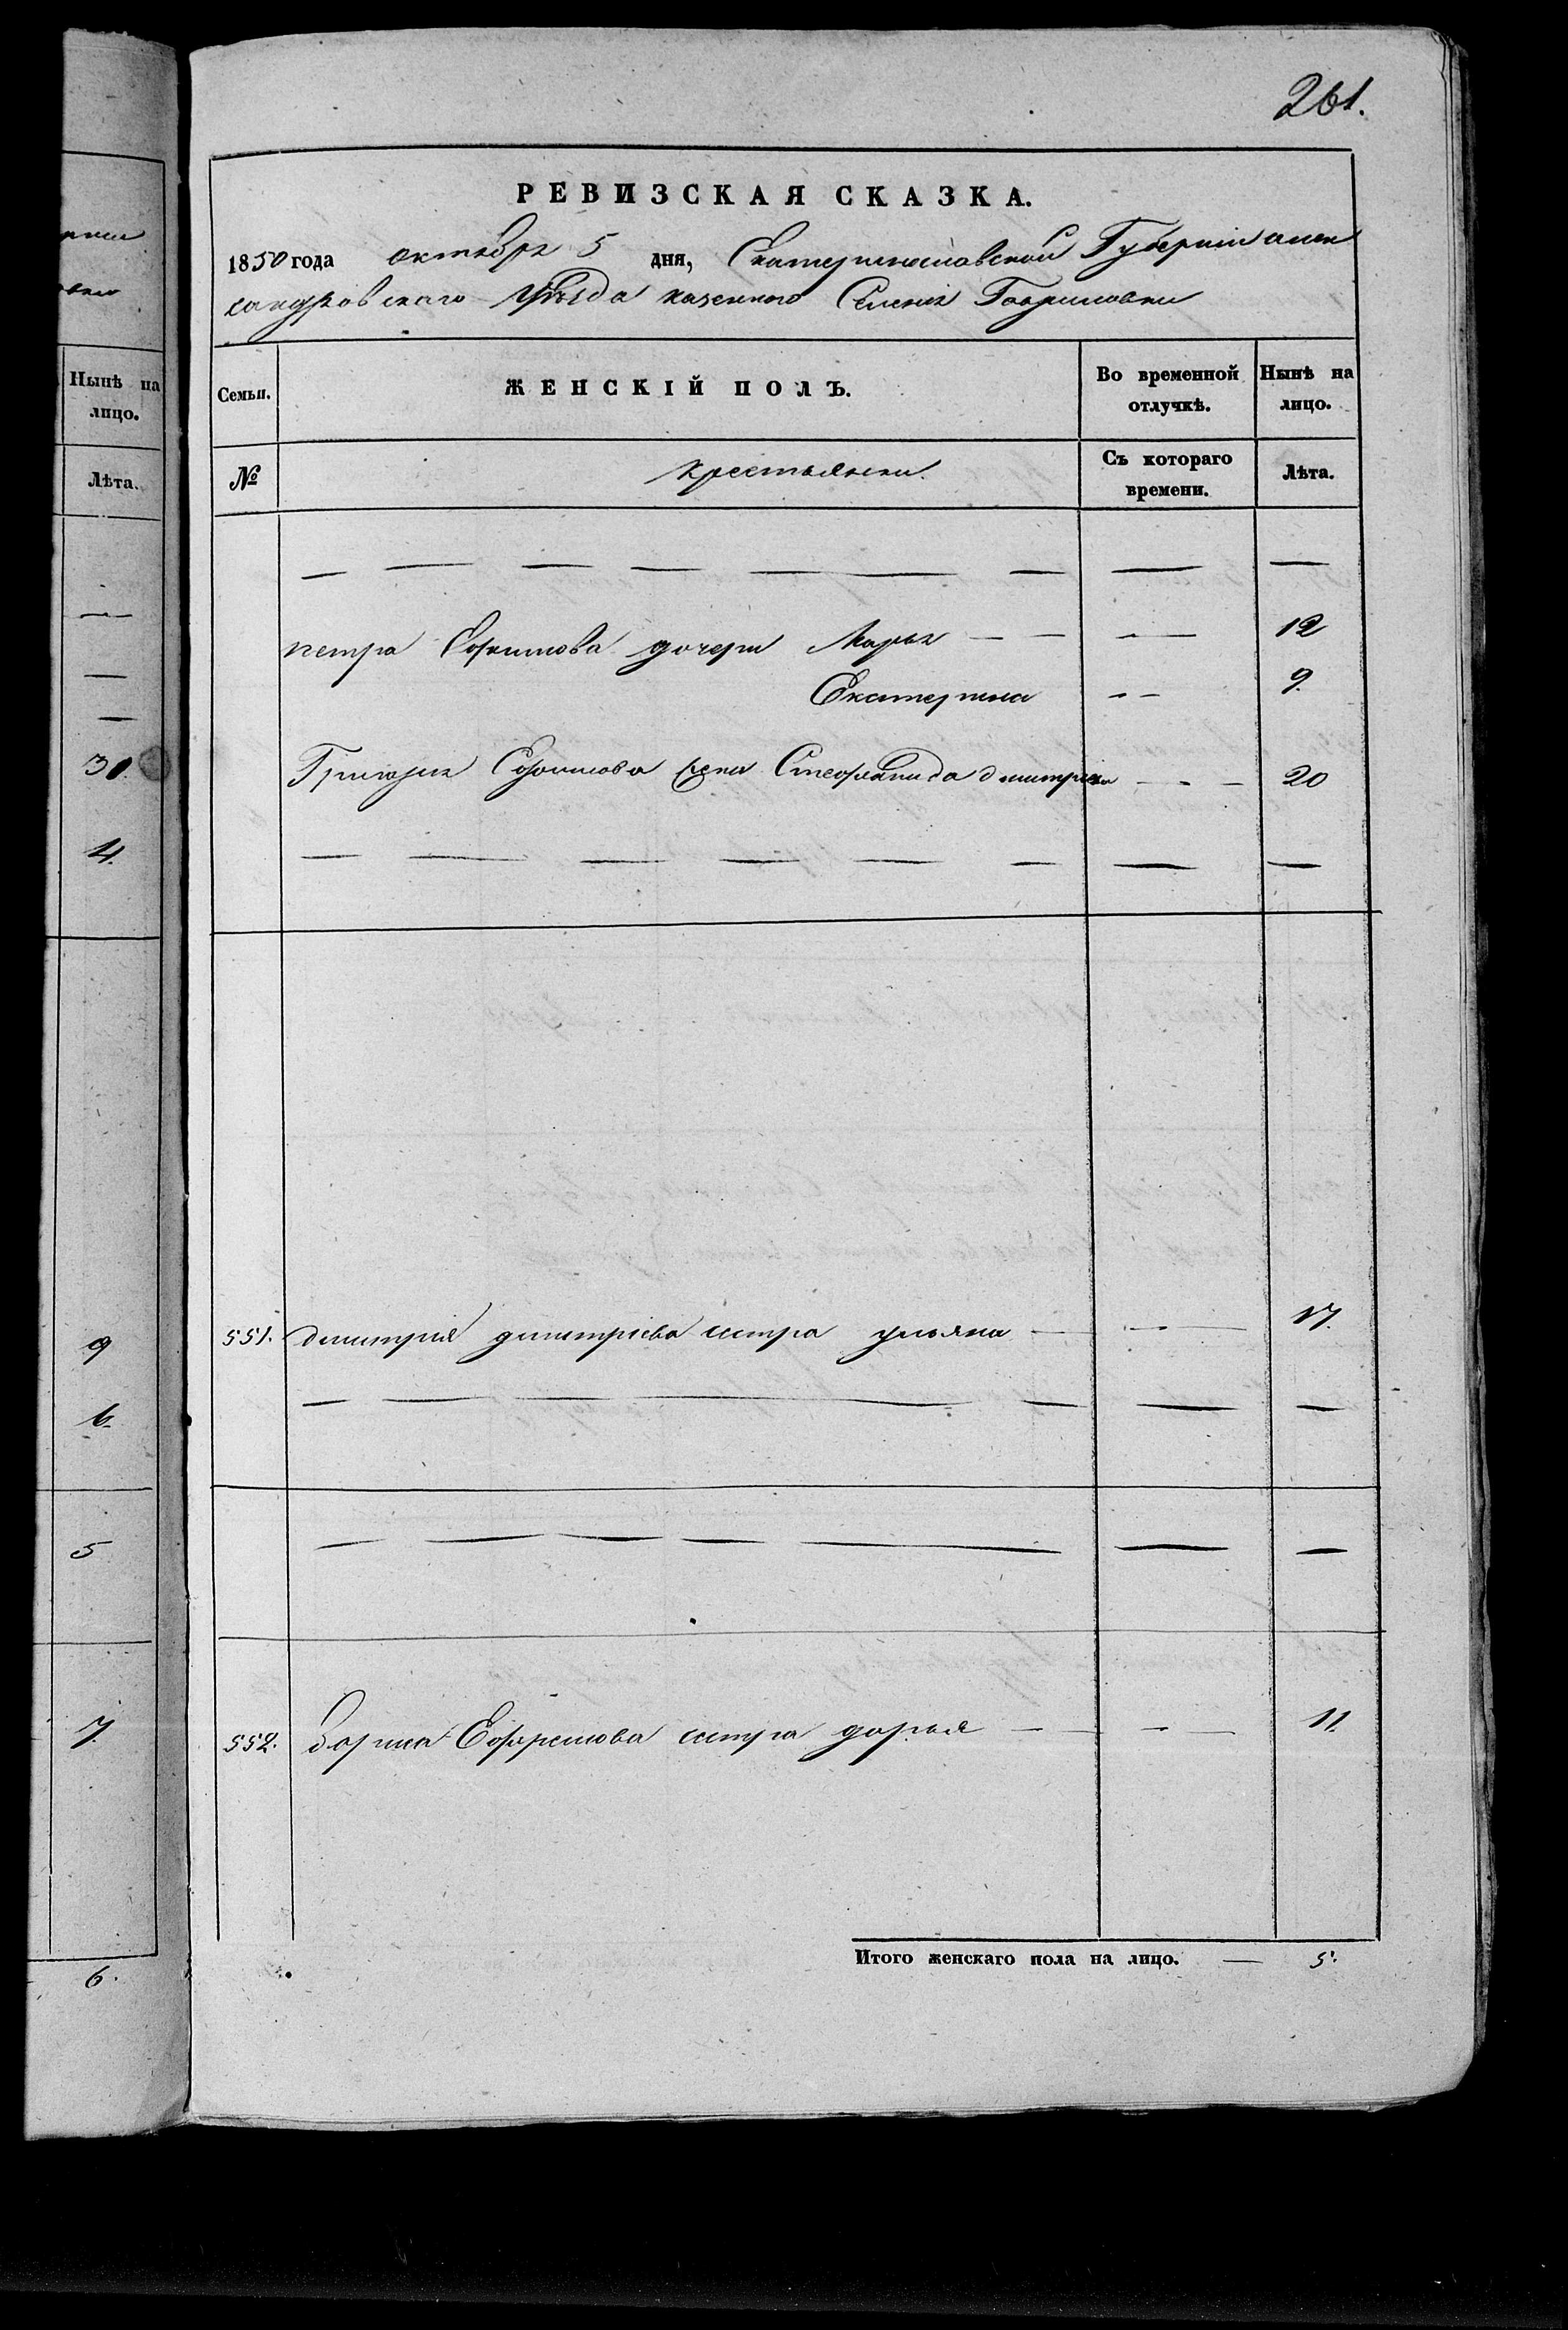 261.
РЕВИЗСКАЯ СКАЗКА.
1850 года октября 5 дня, Екатеринославской Губерніи алек
сандровскаго уѣзда казенного Селенія Гавриловки
Нынѣ на
лицо.
Лѣта.
Семьи.
ЖЕНСКІЙ ПОЛЪ.
Во временной
отлучкѣ.
Нынѣ на
лицо.
№
крестьянки.
Съ котораго
времени.
Лѣта.
петра Ефимова дочери Марья — — — 12
Екатерина — — 9.
Григорія Ефимова жена Стефанида дмитріева — — — 20
551. дмитрия дмитріева сестра ульяна — — — 17.
552. бориса Ефремова сестра дарья — — — 11.
Итого женскаго пола на лицо. — 5.
30.
4.
9
6.
5
7.
6.